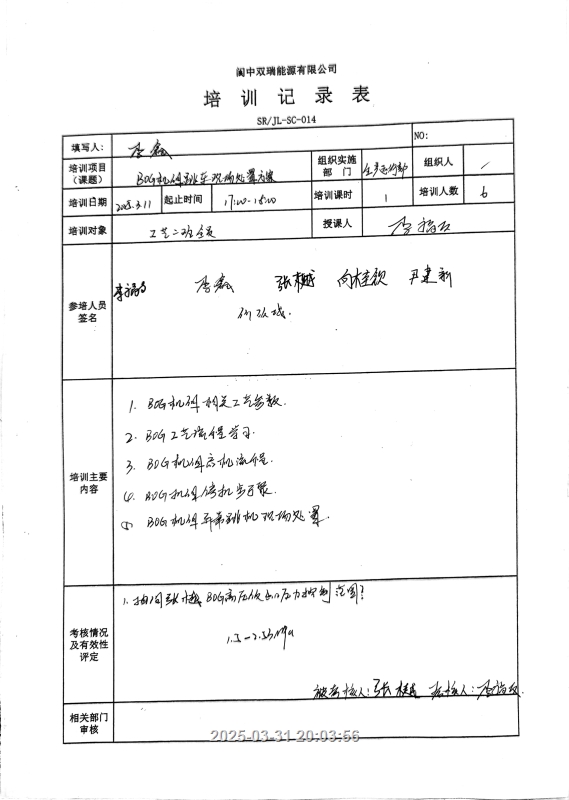 阆中双瑞能源有限公司
培训记录表
SR/JL-SC-014
填写人： 李鑫 NO:
培训项目（课题） BOG机组跳车现场处置方案 组织实施部门 生产运行部 组织人 /
培训日期 2025.3.11 起止时间 17:00-18:00 培训课时 1 培训人数 6
培训对象 工艺二班全员 授课人 李
参培人员签名 李 李鑫 张 向桂 尹建新
培训主要内容
1. BOG机组相关工艺参数.
2. BOG工艺流程学习.
3. BOG机组启机流程.
4. BOG机组停机步骤.
5 BOG机组异常跳机现场处置.
考核情况及有效性评定
1. 抽问张 BOG高压 压力控制范围?
1.5-2.35MPa
被考核人: 张 考核人: 李
相关部门审核
2025-03-31 20:03:56